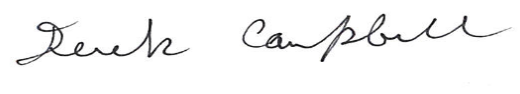 Derek Campbell